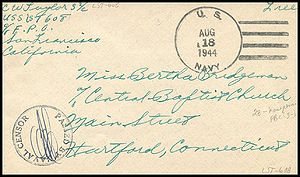 C W Taylor S 1/c
USS LST 608
℅ F.P.O.
San Francisco
California
Free
U. S.
AUG
18
1944
NAVY
Miss Bertha Bridgeman
℅ Central Baptist Church
Main Street
Hartford, Connecticut
PASSED BY
NAVAL CENSOR
LST-608